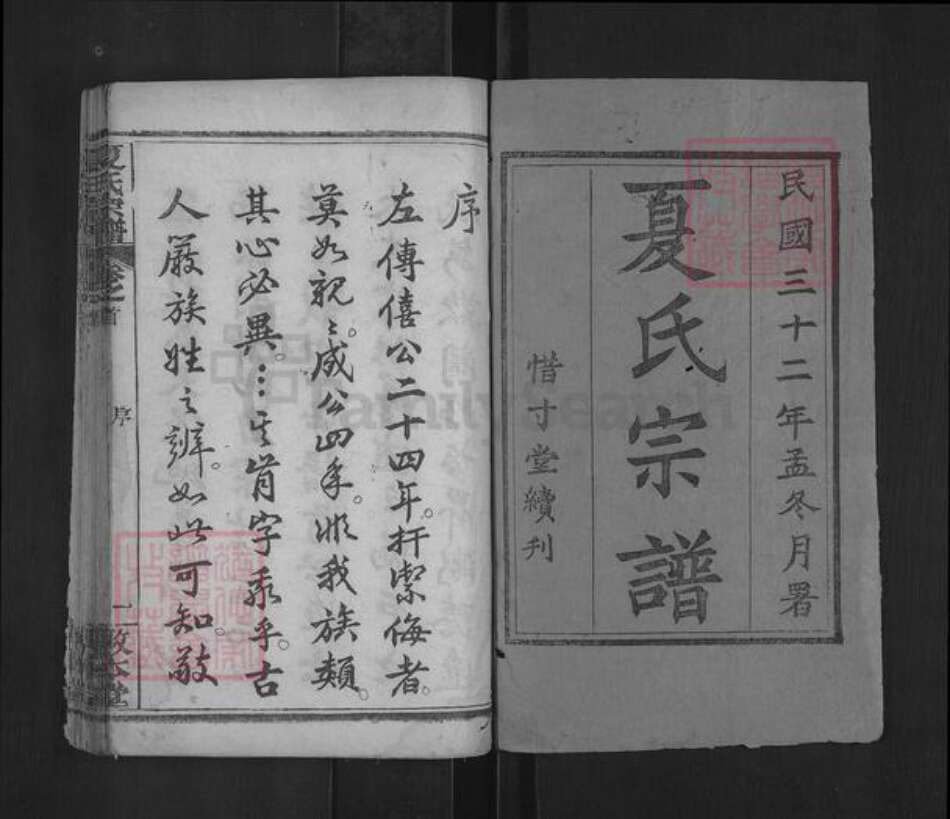 民國三十二年孟冬月署
夏氏宗譜
惜寸堂續刊
序
左傳僖公二十四年。扞禦侮者。
莫如親親。成公四年。非我族類。
其心必異。字乎。古
人嚴族姓之辨。如此可知。敬
夏氏宗譜
卷之首
序
一
敦本堂
FamilySearch